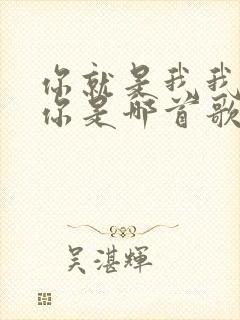 你就是我我
你是哪首歌
吴湛輝